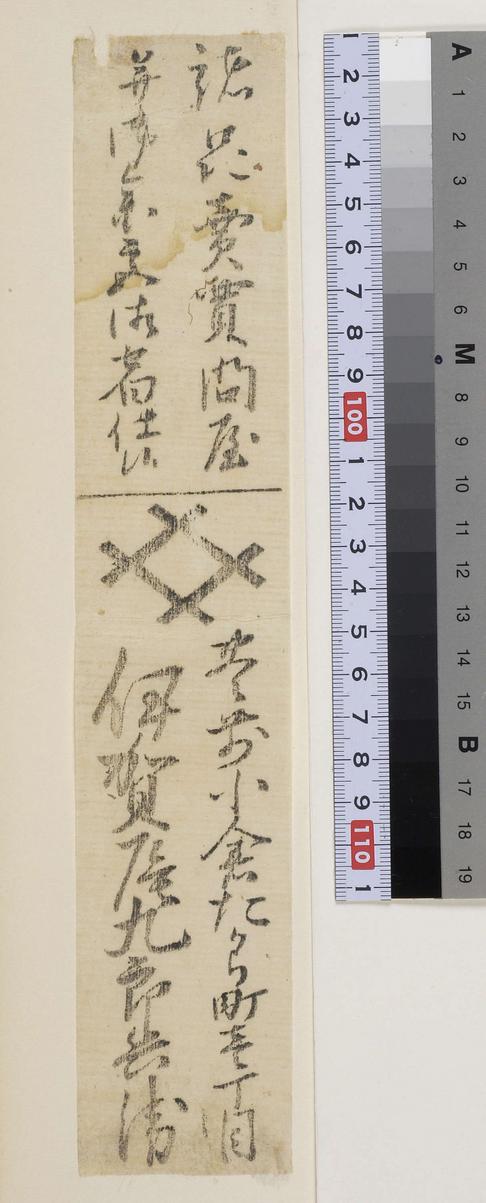 諸品売買問屋
并御
豊前小倉たから町壱丁目
伊賀屋九郎兵衛
1 2 3 4 5 6 7 8 9 100 1 2 3 4 5 6 7 8 9 110 1
A 1 2 3 4 5 6 M 8 9 10 11 12 13 14 15 B 17 18 19